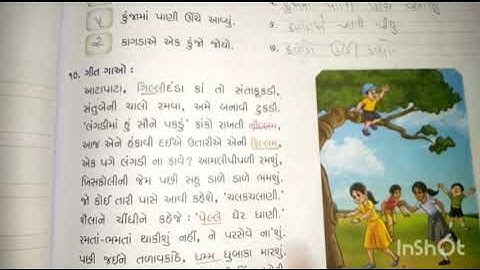 ૫ કુંજામાં પાણી ઊંચે આવ્યું.
૨ કાગડાએ એક કુંજો જોયો.
૭.
૧૦. ગીત ગાઓ :
આટાપાટા, ગિલ્લીદંડા કાં તો સંતાકૂકડી,
સંતુબેની ચાલો રમવા, અમે બનાવી ટુકડી.
'લંગડીમાં હું સૌને પકડું' કાંકો રાખતી
આજ એને હંકાવી દઇએ ઉતારીએ એની
એક પગે લંગડી ના ફાવે? આમલીપીપળી રમશું,
ખિસકોલીની જેમ પછી સહુ ડાળે ડાળે ભમશું.
જો કોઈ તારી પાસે આવી કહેશે, 'ચલકચલાણી.'
શૈલાને ચીંધીને કહેજે : 'પેલ્લે ઘેર ધાણી.'
રમતાં-ભમતાં થાકીશું નહીં, ને પરસેવે ના'શું.
પછી જઈને તળાવકાંઠે, ધમ્મ ધુબાકા મારશું.
InShot